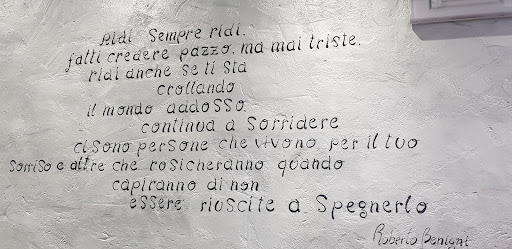 Ridi Sempre ridi.
fatti credere pazzo. ma mai triste.
ridi anche se ti sta
crollando
il mondo addosso.
continua a Sorridere
ci sono persone che vivono per il tuo
Sorriso e altre che rosicheranno quando
capiranno di non
essere riuscite a Spegnerlo
Roberto Benigni